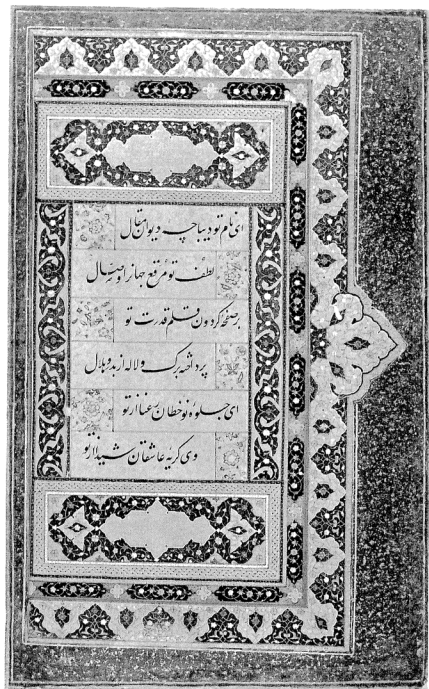 ای نام تو دیباچه دیوان
لطف تو مرقع جهانرا وصال
بر صفحه کردون قلم قدرت تو
برک و لاله از بدر و هلال
ای جلوه نوخطان رعنا از تو
وی کریه عاشقان شیدا از تو